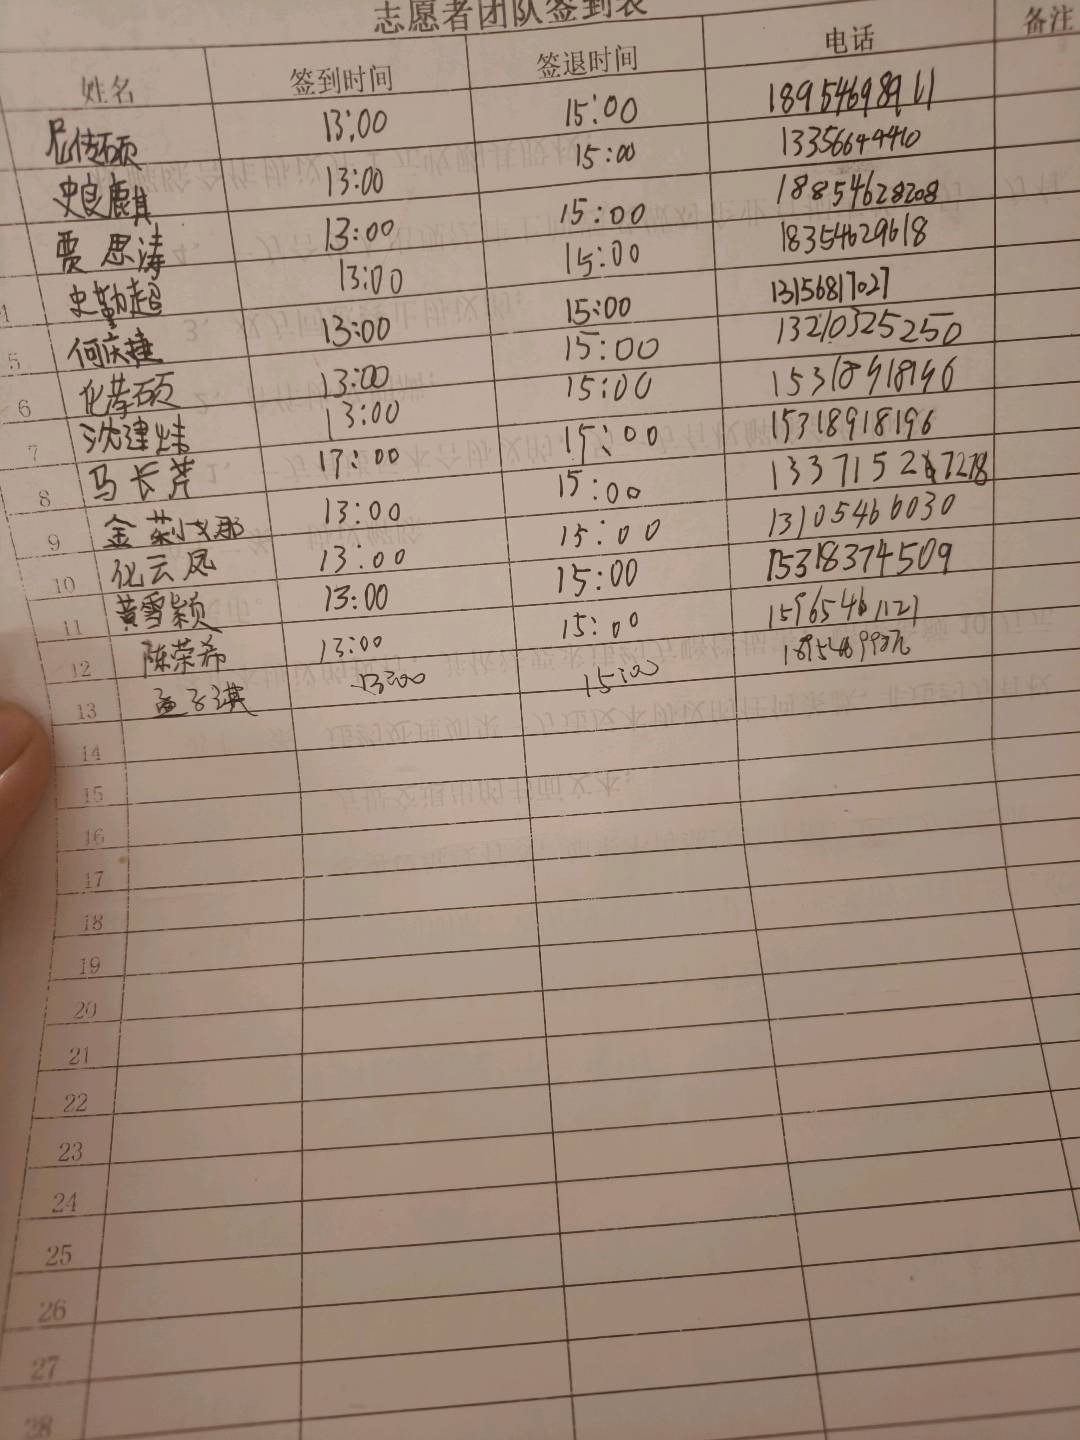 志愿者团队签到表
姓名 签到时间 签退时间 电话 备注
尼传硕 13:00 15:00 18954698911
史良麒 13:00 15:00 13356644410
贾思涛 13:00 15:00 18854628208
4 史勤超 13:00 15:00 18354629618
5 何庆捷 13:00 15:00 13156817027
6 化孝硕 13:00 15:00 13210325250
7 沈建妹 13:00 15:00 15318918196
8 马长芹 13:00 15:00 15318918196
9 金 13:00 15:00
10 化云凤 13:00 15:00 13105466030
11 黄雪颖 13:00 15:00 15318374509
12 陈荣希 13:00 15:00 15965461121
13 孟子琪 13:00 15:00
14
15
16
17
18
19
20
21
22
23
24
25
26
27
28